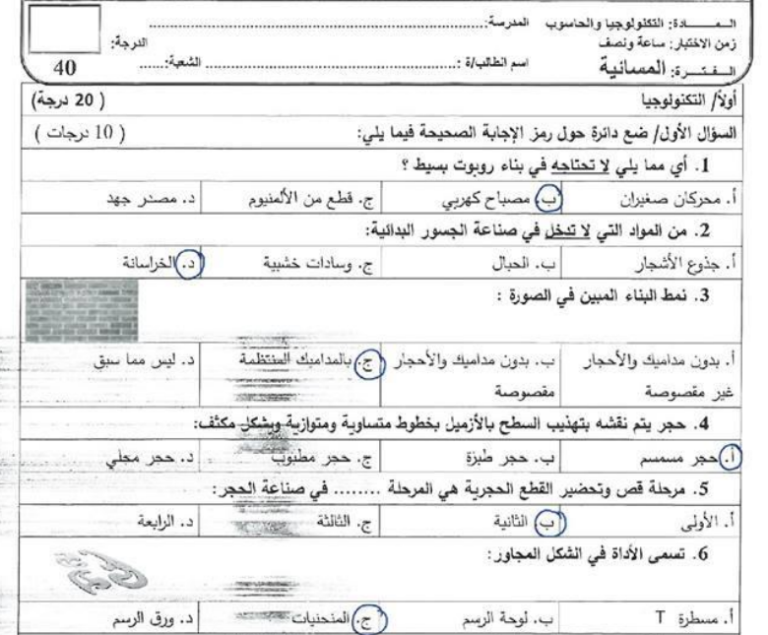 المـــــادة: التكنولوجيا والحاسوب المدرسة:.......................................
زمن الاختبار: ساعة ونصف الدرجة:
الـفـتـــرة: المسائية اسم الطالب/ة :....................................... الشعبة:...... 40
أولاً/ التكنولوجيا ( 20 درجة)
السؤال الأول/ ضع دائرة حول رمز الإجابة الصحيحة فيما يلي: ( 10 درجات )
1. أي مما يلي لا تحتاجه في بناء روبوت بسيط ؟
أ. محركان صغيران ب. مصباح كهربي ج. قطع من الألمنيوم د. مصدر جهد
2. من المواد التي لا تدخل في صناعة الجسور البدائية:
أ. جذوع الأشجار ب. الحبال ج. وسادات خشبية د. الخراسانة
3. نمط البناء المبين في الصورة :
أ. بدون مداميك والأحجار ب. بدون مداميك والأحجار ج. بالمداميك المنتظمة د. ليس مما سبق
غير مقصوصة مقصوصة
4. حجر يتم نقشه بتهذيب السطح بالأزميل بخطوط متساوية ومتوازية وبشكل مكثف:
أ. حجر مسمسم ب. حجر طبزة ج. حجر مطبوب د. حجر مجلي
5. مرحلة قص وتحضير القطع الحجرية هي المرحلة ........ في صناعة الحجر:
أ. الأولى ب. الثانية ج. الثالثة د. الرابعة
6. تسمى الأداة في الشكل المجاور:
أ. مسطرة T ب. لوحة الرسم ج. المنحنيات د. ورق الرسم